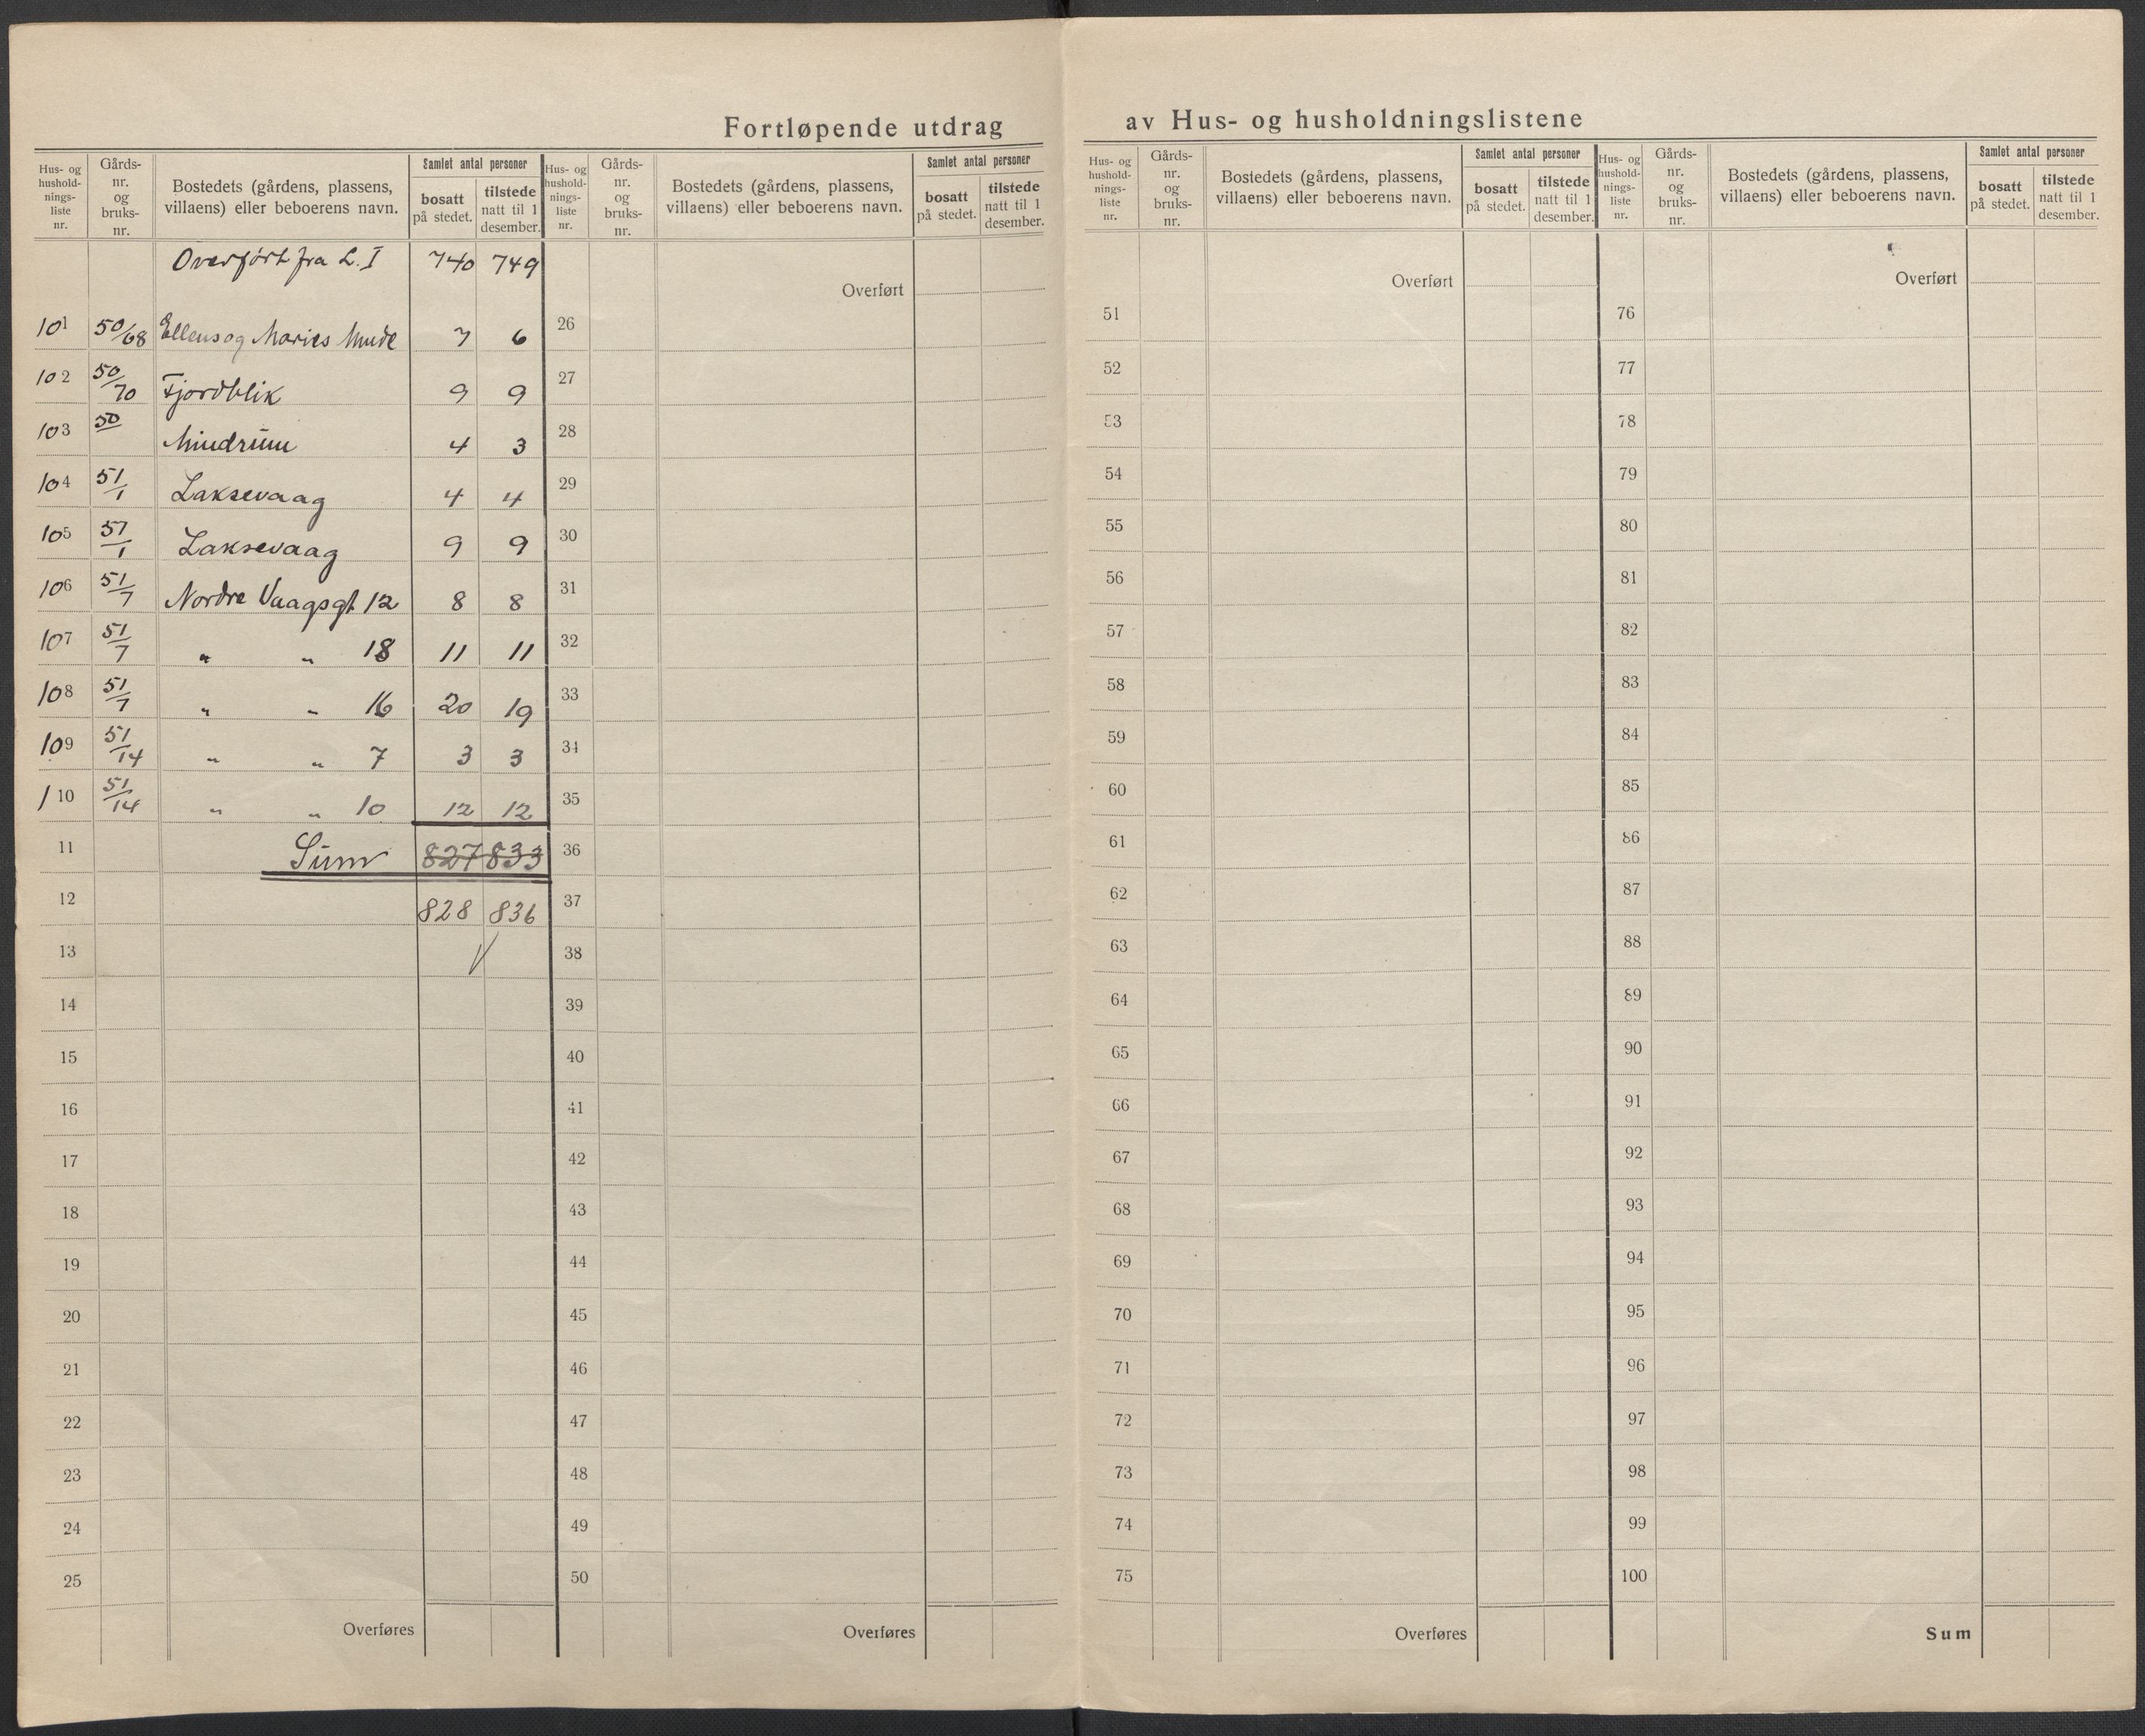 Fortløpende utdrag av Hus- og husholdningslistene
Hus- og hushold-nings-liste nr. Gårds-nr. og bruks-nr. Bostedets (gårdens, plassens, villaens) eller beboerens navn. Samlet antal personer bosatt på stedet. tilstede natt til 1 desember.
Overført fra L. I 740 749
101 50/68 Ellens og Maries Minde 7 6
102 50/70 Fjordblik 9 9
103 50 Mindrum 4 3
104 51/1 Laksevaag 4 4
105 51/1 Laksevaag 9 9
106 51/7 Nordre Vaagsgt 12 8 8
107 51/7 " " 18 11 11
108 51/7 " " 16 20 19
109 51/14 " " 7 3 3
110 51/14 " " 10 12 12
11 Sum 827 833
12 828 836
13
14
15
16
17
18
19
20
21
22
23
24
25
Overføres
Hus- og hushold-nings-liste nr. Gårds-nr. og bruks-nr. Bostedets (gårdens, plassens, villaens) eller beboerens navn. Samlet antal personer bosatt på stedet. tilstede natt til 1 desember.
Overført
26
27
28
29
30
31
32
33
34
35
36
37
38
39
40
41
42
43
44
45
46
47
48
49
50
Overføres
Hus- og hushold-nings-liste nr. Gårds-nr. og bruks-nr. Bostedets (gårdens, plassens, villaens) eller beboerens navn. Samlet antal personer bosatt på stedet. tilstede natt til 1 desember.
Overført
51
52
53
54
55
56
57
58
59
60
61
62
63
64
65
66
67
68
69
70
71
72
73
74
75
Overføres
Hus- og hushold-nings-liste nr. Gårds-nr. og bruks-nr. Bostedets (gårdens, plassens, villaens) eller beboerens navn. Samlet antal personer bosatt på stedet. tilstede natt til 1 desember.
Overført
76
77
78
79
80
81
82
83
84
85
86
87
88
89
90
91
92
93
94
95
96
97
98
99
100
Sum